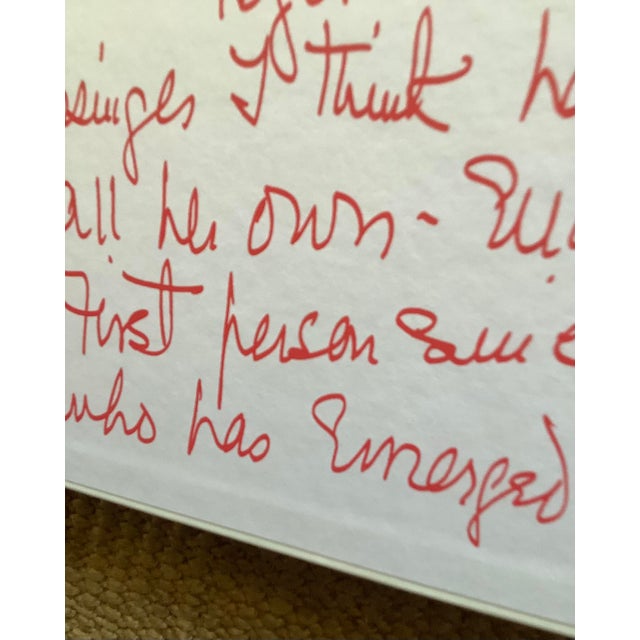 singes I think he
all her own -
First person since
who has Emerged